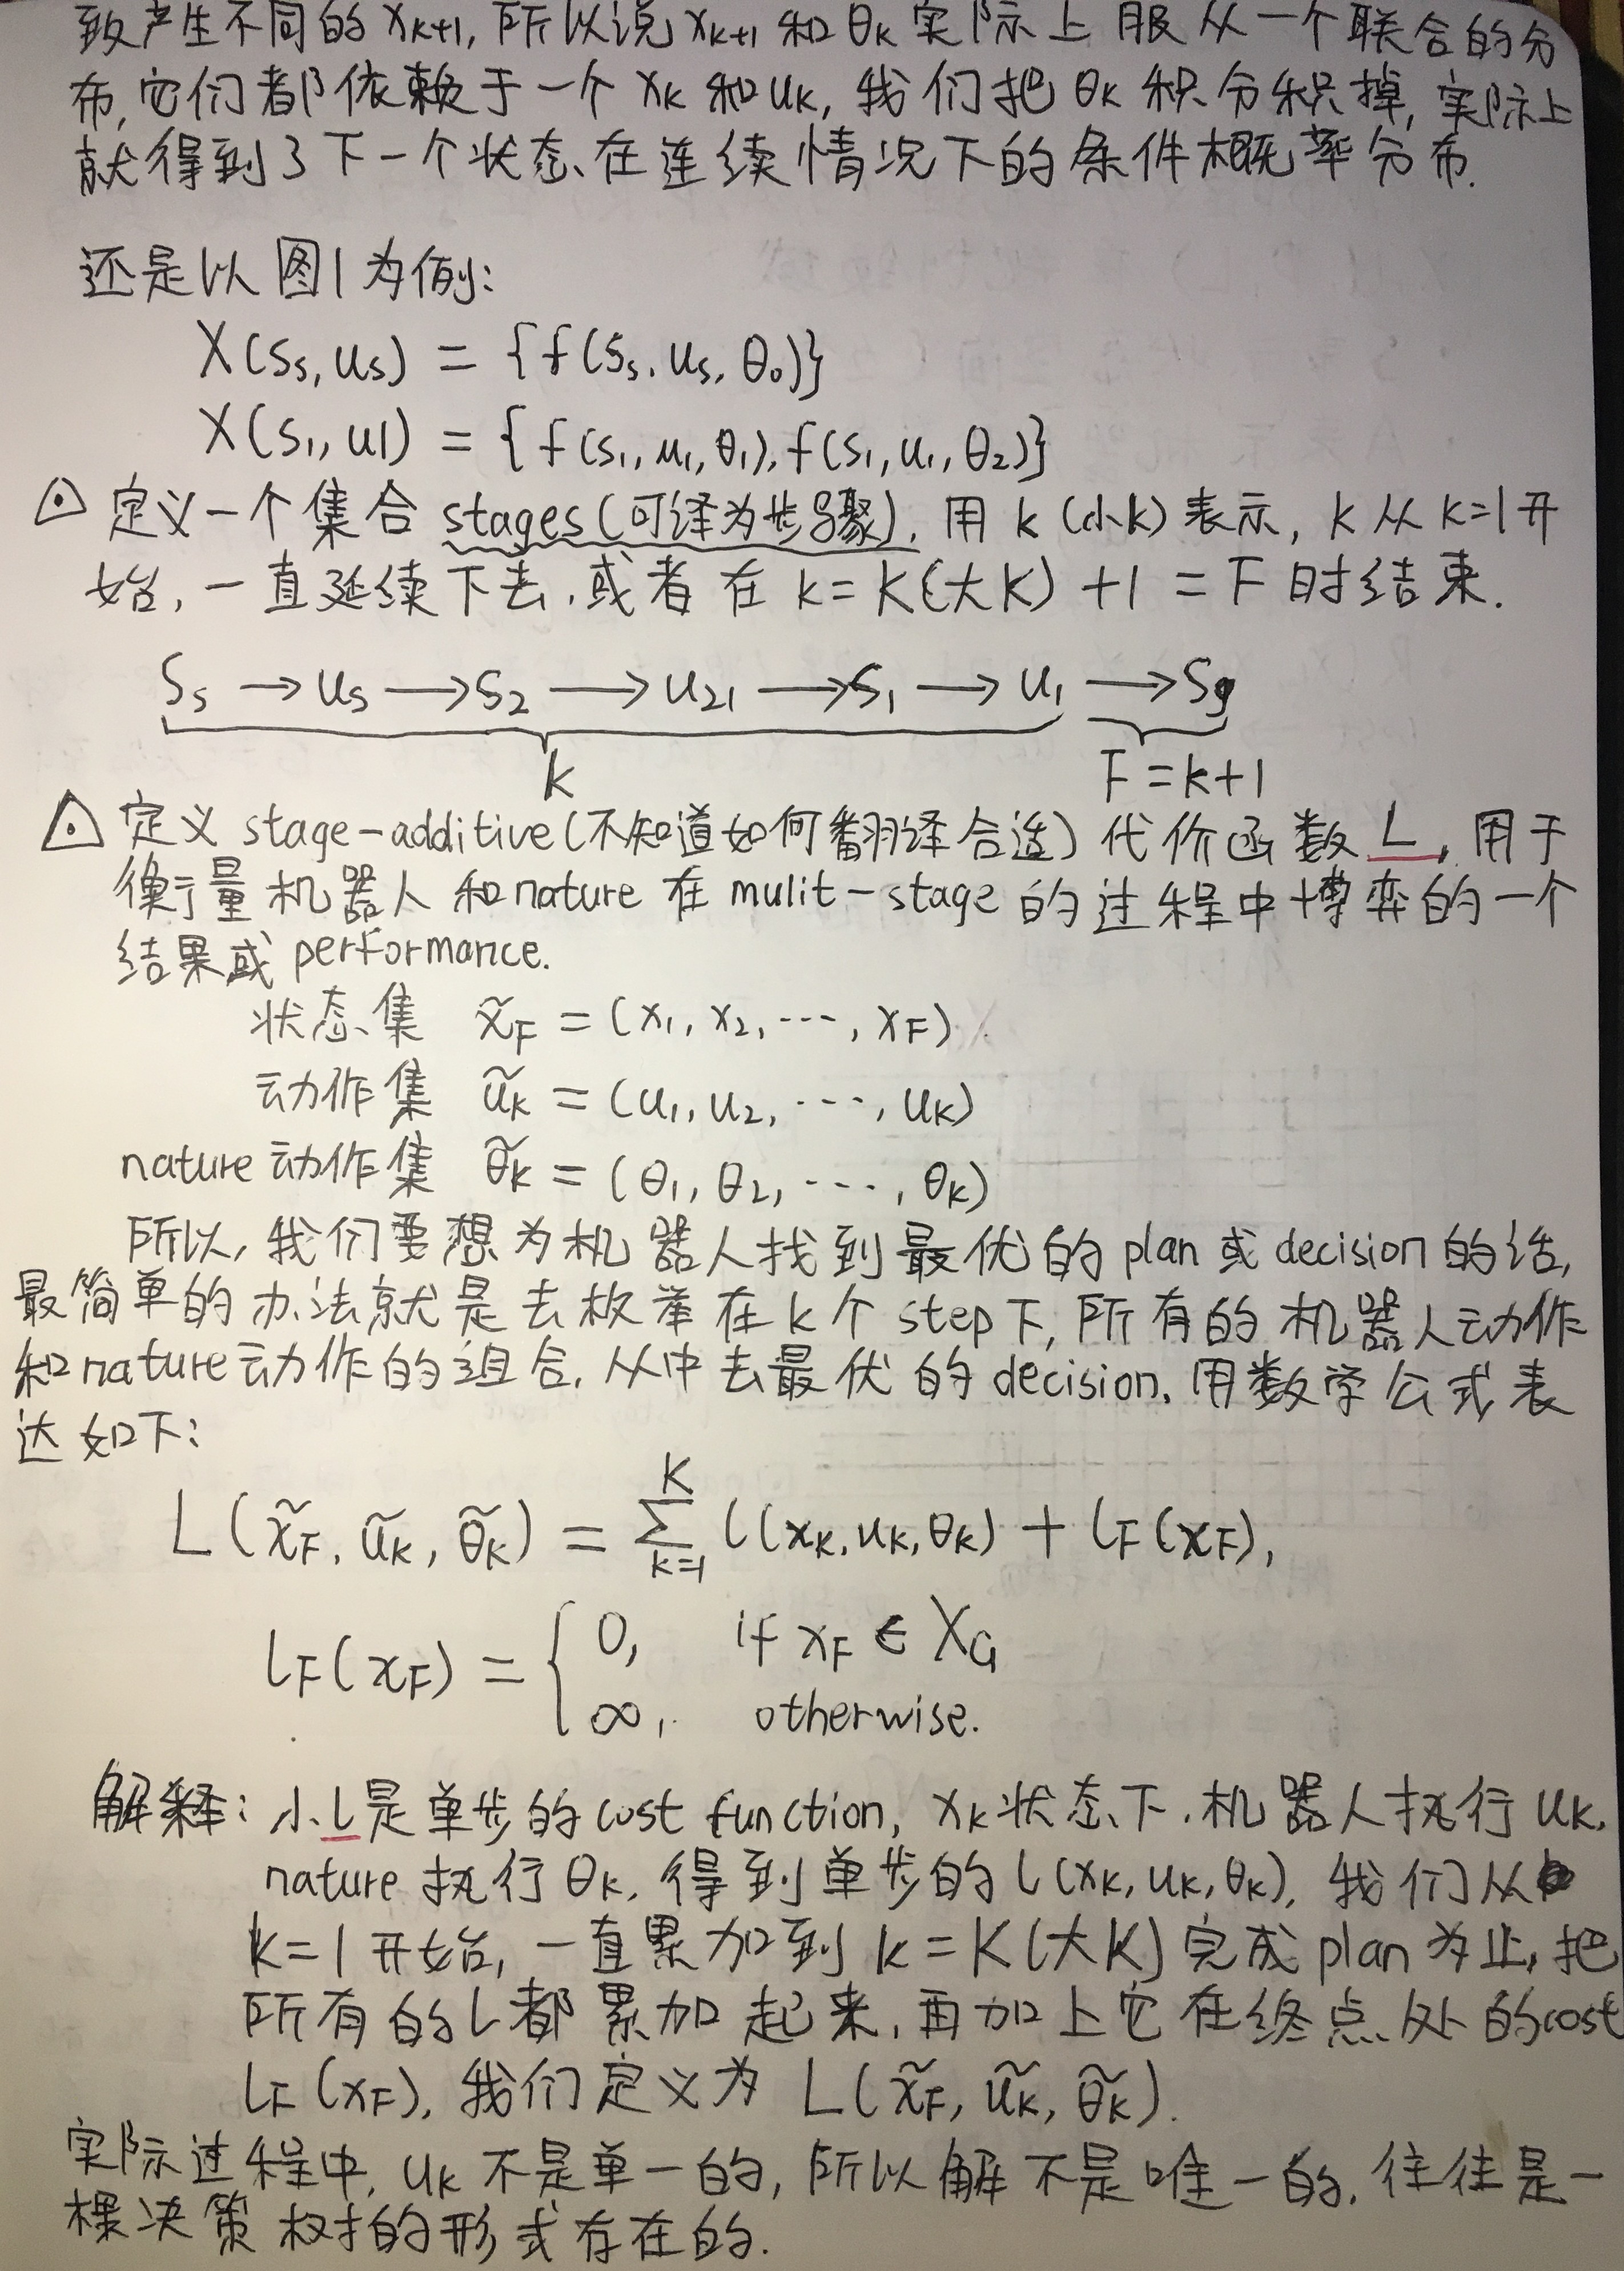 致产生不同的 xₖ₊₁, 所以说 xₖ₊₁ 和 θₖ 实际上 服从一个联合的分
布, 它们都依赖于一个 xₖ 和 uₖ, 我们把 θₖ 积分积掉, 实际上
就得到了下一个状态在连续情况下的条件概率分布.
还是以图1为例:
X(Sₛ, uₛ) = {f(Sₛ, uₛ, θ₀)}
X(S₁, u1) = {f(S₁, u₁, θ₁), f(S₁, u₁, θ₂)}
定义一个集合 stages(可译为步骤), 用 k (小k) 表示, k 从 k=1 开
始, 一直延续下去, 或者在 k = K(大K) + 1 = F 时结束.
Sₛ → uₛ → S₂ → u₂₁ → S₁ → u₁ → Sg
k F = k+1
定义 stage-additive(不知道如何翻译合适) 代价函数 L, 用于
衡量机器人和nature 在 mulit-stage 的过程中博弈的一个
结果或 performance.
状态集 x̃_F = (x₁, x₂, ···, x_F)
动作集 ũ_K = (u₁, u₂, ···, u_K)
nature 动作集 θ̃_K = (θ₁, θ₂, ···, θ_K)
所以, 我们要想为机器人找到最优的 plan 或 decision 的话,
最简单的办法就是去枚举在 k 个 step 下, 所有的机器人动作
和nature动作的组合, 从中去最优的 decision, 用数学公式表
达如下:
L(x̃_F, ũ_K, θ̃_K) = ∑_{k=1}^{K} l(x_K, u_K, θ_K) + l_F(x_F),
l_F(x_F) = { 0, if x_F ∈ X_G
∞, otherwise.
解释: 小l是单步的cost function, xₖ状态下, 机器人执行 uₖ,
nature 执行 θₖ, 得到单步的 l(xₖ, uₖ, θₖ), 我们从
k=1 开始, 一直累加到 k = K(大K) 完成 plan 为止, 把
所有的l都累加起来, 再加上它在终点处的cost
l_F(x_F), 我们定义为 L(x̃_F, ũ_K, θ̃_K).
实际过程中, uₖ 不是单一的, 所以解不是唯一的, 往往是一
棵决策树的形式存在的.